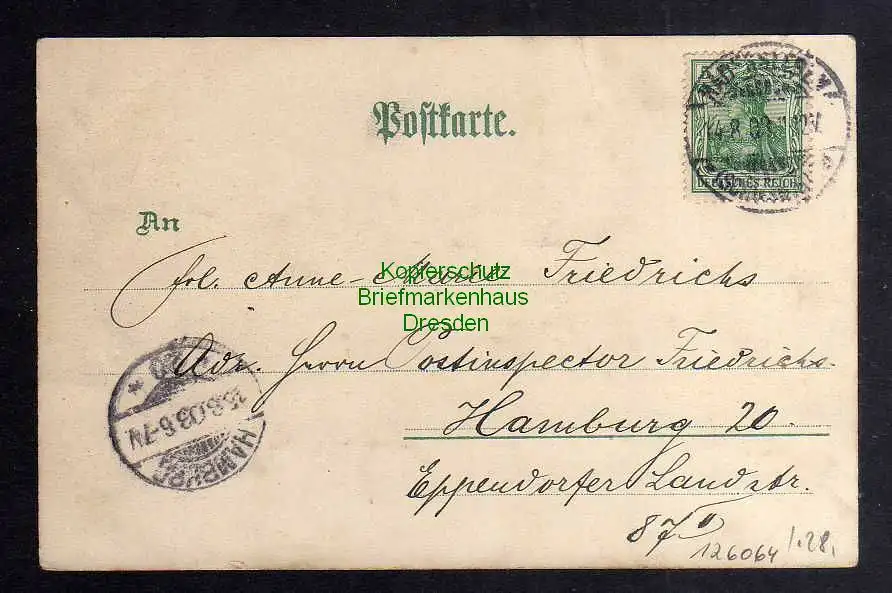 Postkarte.
DEUTSCHES REICH
An
Frl. Anne-Marie Friedrichs
Kopierschutz
Briefmarkenhaus
Dresden
Adr. Herrn Postinspector Friedrichs.
Hamburg 20
Eppendorfer Landstr.
87
HAMBURG
15.8.03.6-7N
126064
1.28.